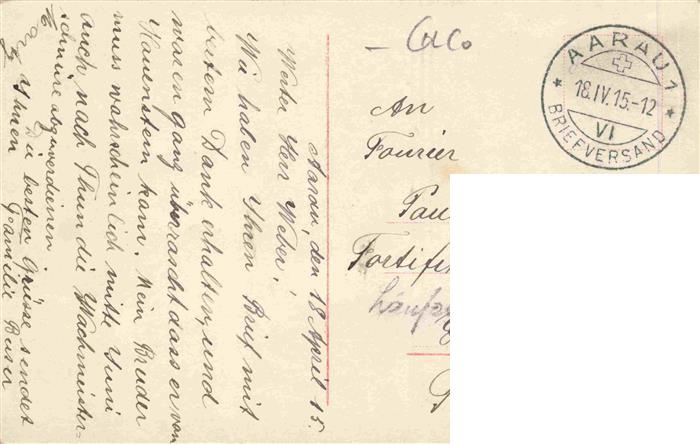 Aarau, den 18 April 15.
Werter Herr Weber!
Wir haben Ihren Brief mit
bestem Dank erhalten, und
waren ganz überrascht dass er von
Hauenstein kam. Mein Bruder
muss wahrscheinlich mitte Juni
auch nach Thun die Wachmeister-
schnüre abzuverdienen.
Ihnen die besten Grüsse sendet
Familie Buser
An
Fourier
AARAU 1
18.IV.15.-12
VI
BRIEFVERSAND